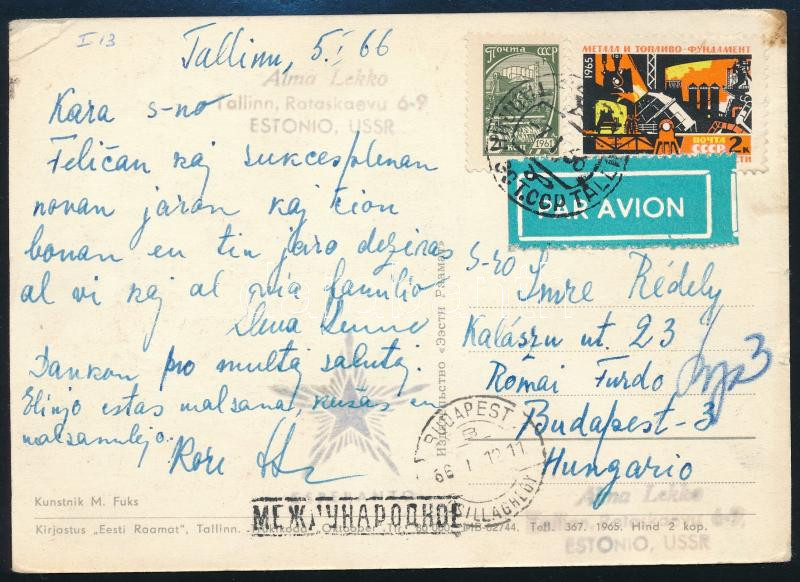 I 13
Tallinn, 5.I 66
Alma Lekko
Tallinn, Rataskaevu 6-9
ESTONIO, USSR
Kara s-no
Feliĉan kaj sukcesplenan
novan jaron kaj ĉion
bonan en tiu jaro deziras
al vi kaj al via familio
Dankon pro multaj salutoj.
Elinjo estas malsana, kuŝas en
malsanulejo.
Kore
Почта СССР
1961
МЕТАЛЛ И ТОПЛИВО-ФУНДАМЕНТ
1965
ПОЧТА
СССР 2к
PAR AVION
S-ro Imre Rédely
Kalászu ut. 23
Római Furdo
Budapest-3
Hungario
Издательство «Ээсти Раамат»
BUDAPEST
66 I 12 11
ESPERANTO
МЕЖДУНАРОДНОЕ
Alma Lekko
Tallinn, Rataskaevu 6-9,
ESTONIO, USSR
Kunstnik M. Fuks
Kirjastus „Eesti Raamat", Tallinn. Trükikoda „Oktoober" Tlr. 80 000. MB-02744. Tell. 367. 1965. Hind 2 kop.